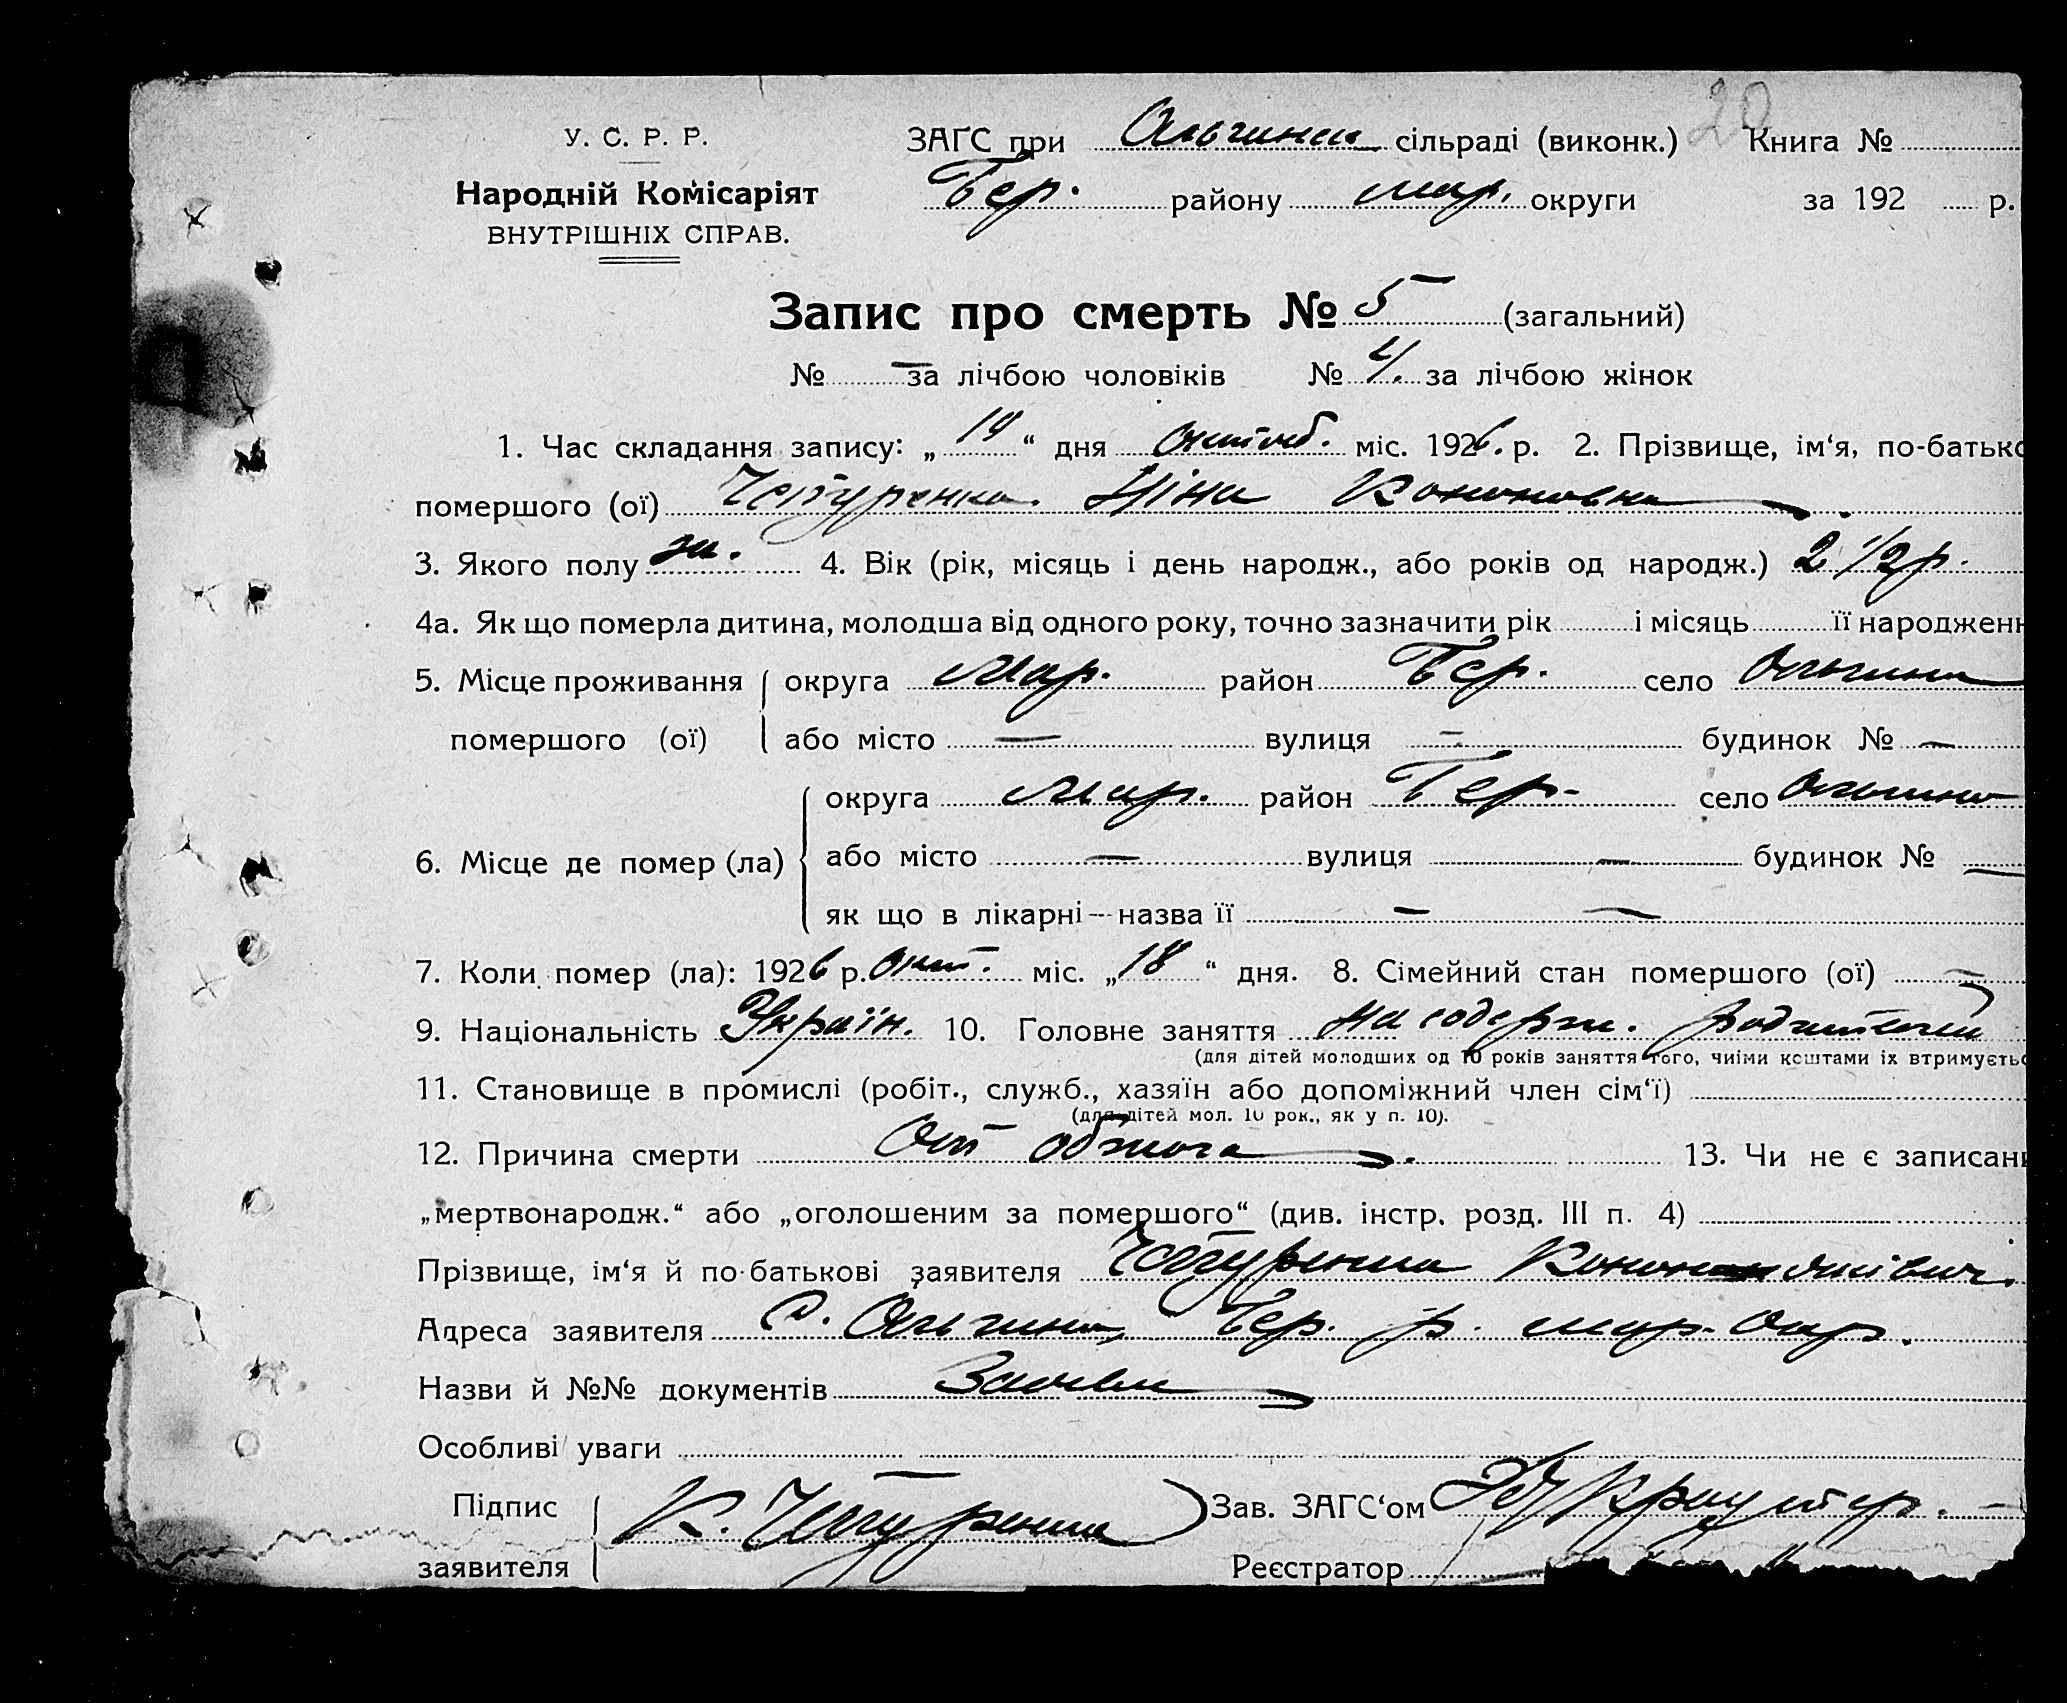 20
У. С. Р. Р.
Народній Комісаріят
ВНУТРІШНІХ СПРАВ.
ЗАГС при Ольгинск сільраді (виконк.) Книга №
Бер. району мар. округи за 192 р.
Запис про смерть № 5 (загальний)
№ — за лічбою чоловіків № 4. за лічбою жінок
1. Час складання запису: „ 19 “ дня октяб. міс. 1926. р. 2. Прізвище, ім‘я, по-батько
помершого (ої) Чепуренко Ніна Кононовна
3. Якого полу ж. 4. Вік (рік, місяць і день народж., або років од народж.) 2 1/2 р.
4а. Як що померла дитина, молодша від одного року, точно зазначити рік і місяць її народженн
5. Місце проживання округа Мар. район Бер. село Ольгино
помершого (ої) або місто — вулиця — будинок № —
округа мар. район Бер. село Ольгино
6. Місце де помер (ла) або місто — вулиця — будинок № —
як що в лікарні — назва її — —
7. Коли помер (ла): 1926 р. Окт. міс. „ 18 “ дня. 8. Сімейний стан помершого (ої) —
9. Національність Україн. 10. Головне заняття на содерж. родителей
(для дітей молодших од 10 років заняття того, чиїми коштами їх втримуєтьс
11. Становище в промислі (робіт., служб., хазяїн або допоміжний член сім‘ї)
(для дітей мол. 10 рок., як у п. 10).
12. Причина смерти От обжога. 13. Чи не є записани
„мертвонародж.“ або „оголошеним за помершого“ (див. інстр. розд. III п. 4)
Прізвище, ім‘я й по-батькові заявителя Чепуренко Конон
Адреса заявителя С. Ольгино, Бер. р. мар. окр.
Назви й №№ документів
Особливі уваги
Підпис К. Чепуренко Зав. ЗАГС‘ом
заявителя Реєстратор